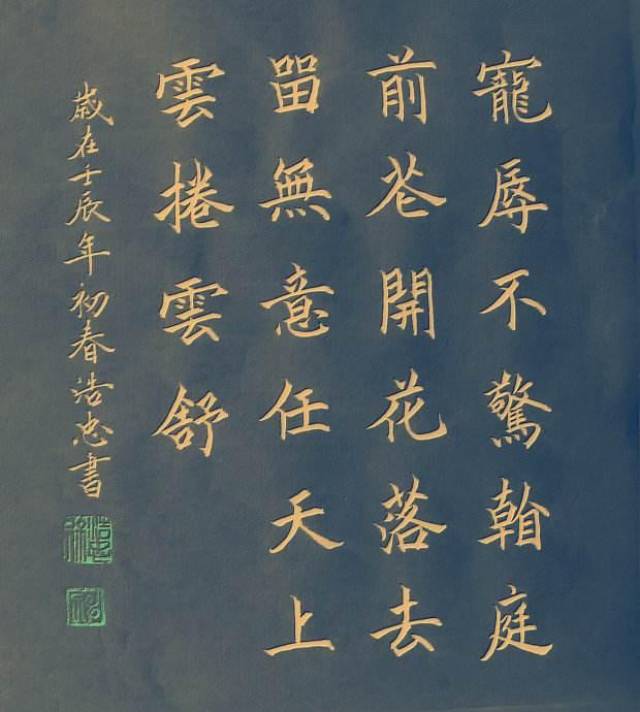 寵辱不驚翰庭
前芲開花落去
留無意任天上
雲捲雲舒
歲在壬辰年初春浩忠書